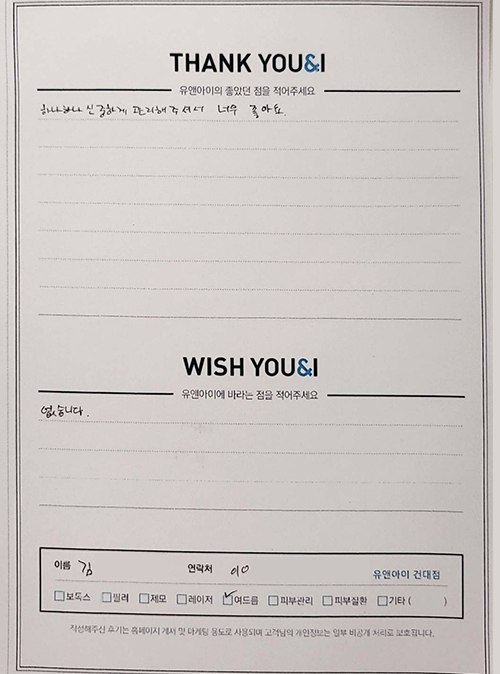 THANK YOU&I
유앤아이의 좋았던 점을 적어주세요
하나하나 신중하게 관리해주셔서 너무 좋아요.
WISH YOU&I
유앤아이에 바라는 점을 적어주세요
없습니다.
이름 김 연락처 010 유앤아이 건대점
보톡스 필러 제모 레이저 여드름 피부관리 피부질환 기타 ( )
작성해주신 후기는 홈페이지 게시 및 마케팅 용도로 사용되며 고객님의 개인정보는 일부 비공개 처리로 보호됩니다.